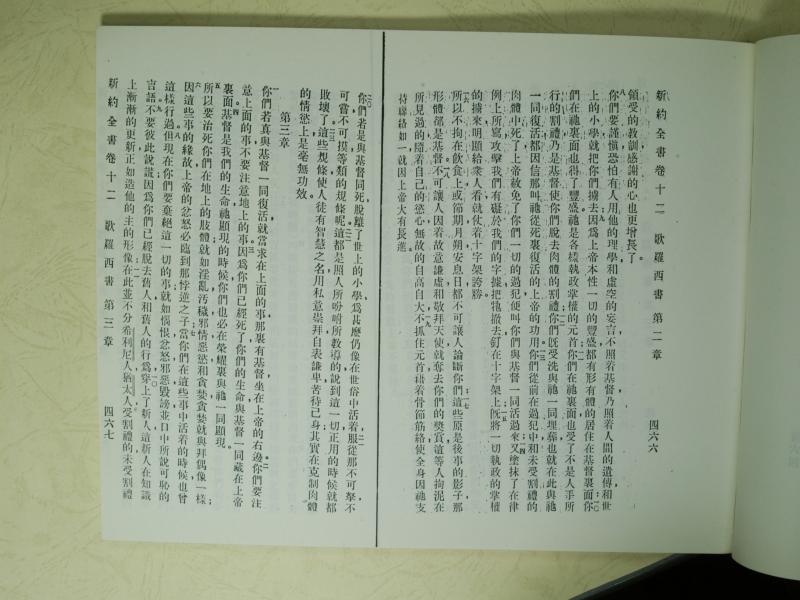 新約全書卷十二 歌羅西書 第二章 四六六
領受的教訓感謝的心也更增長了。
八你們要謹愼恐怕有人用他的理學和虛空的妄言不照着基督乃照着人間的遺傳和世
上的小學就把你們擄去因爲上帝本性一切的豐盛都有形有體的居住在基督裏面你
們在祂裏面也得了豐盛祂是各樣執政掌權的元首你們在祂裏面也受了不是人手所
行的割禮乃是基督使你們脫去肉體的割禮你們旣受洗與祂一同埋葬也就在此與祂
一同復活都因信那叫祂從死裏復活的上帝的功用你們從前在過犯中和未受割禮的
肉體中死了上帝赦免了你們一切的過犯便叫你們與基督一同活過來又塗抹了在律
例上所寫攻擊我們有礙於我們的字據把牠撤去釘在十字架上旣將一切執政的掌權
的擄來明顯給衆人看就仗着十字架誇勝。
所以不拘在飲食上或節期月朔安息日都不可讓人論斷你們這些原是後事的影子那
形體都是基督不可讓人因着故意謙虛和敬拜天使就奪去你們的獎賞這等人拘泥在
所見過的隨着自己的慾心無故的自高自大不抓住元首藉着骨節筋絡使全身因祂支
持聯絡如一就因上帝大有長進。
你們若是與基督同死脫離了世上的小學爲甚麽仍像在世俗中活着服從那不可拏不
可嘗不可摸等類的規條呢這都是照人所吩咐所教導的說到這一切正用的時候就都
敗壞了這些規條使人徒有智慧之名用私意崇拜自表謙卑苦待己身其實在克制肉體
的情慾上是毫無功效。
第三章
你們若真與基督一同復活就當求在上面的事那裏有基督坐在上帝的右邊你們要注
意上面的事不要注意地上的事因爲你們已經死了你們的生命與基督一同藏在上帝
裏面基督是我們的生命祂顯現的時候你們也必在榮耀裏與祂一同顯現。
所以要治死你們在地上的肢體就如淫亂汚穢邪情惡慾和貪婪貪婪就與拜偶像一樣
因這些事的緣故上帝的忿怒必臨到那悖逆之子當你們在這些事中活着的時候也曾
這樣行過但現在你們要棄絕這一切的事就如惱恨忿怒邪惡毀謗並口中所說可恥的
言語不要彼此說謊因爲你們已經脫去舊人和舊人的行爲穿上了新人這新人在知識
上漸漸的更新正如造他的主的形像在此並不分希利尼人猶太人受割禮的未受割禮
新約全書卷十二 歌羅西書 第三章 四六七